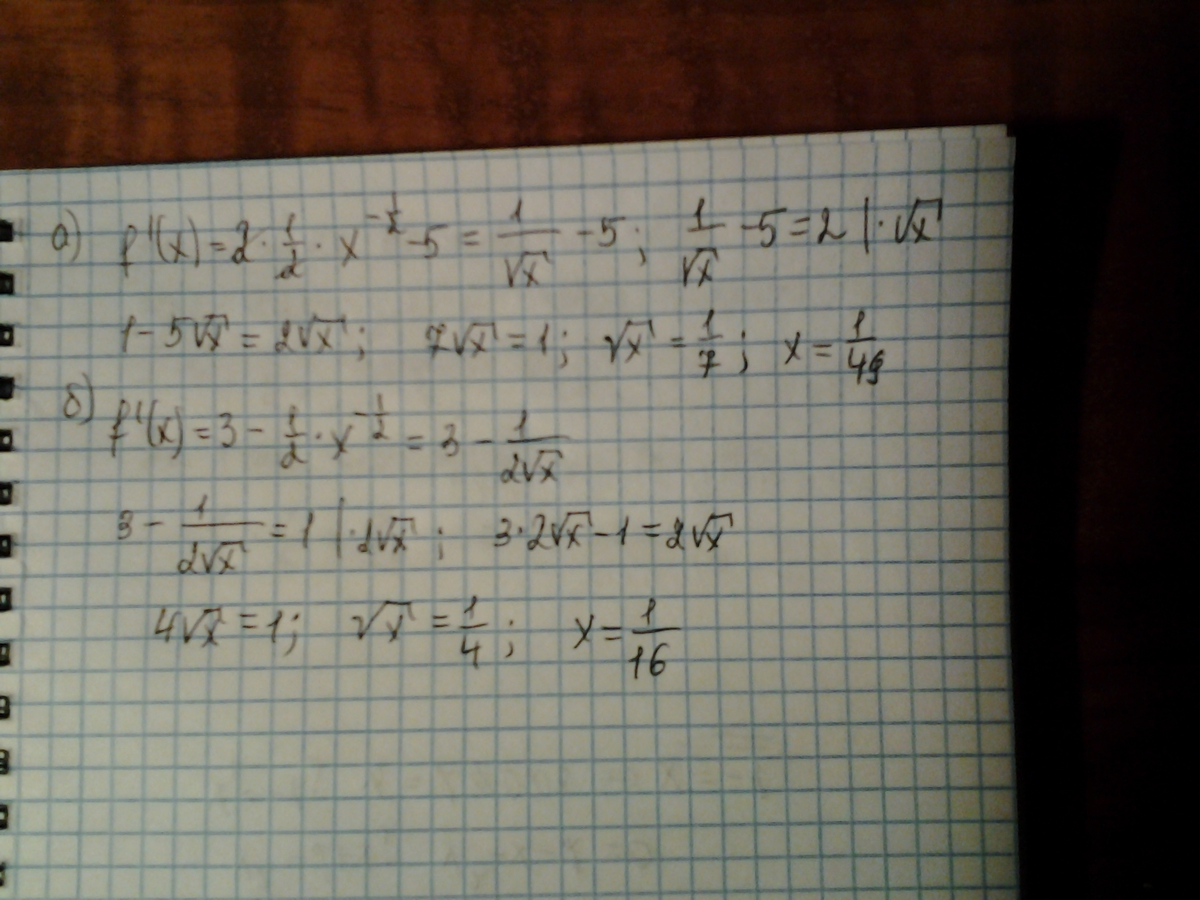 а) f'(x) = 2 · 1/2 · x^(-1/2) - 5 = 1/√x - 5; 1/√x - 5 = 2 | · √x
1 - 5√x = 2√x; 7√x = 1; √x = 1/7; x = 1/49
б) f'(x) = 3 - 1/2 · x^(-1/2) = 3 - 1/(2√x)
3 - 1/(2√x) = 1 | · 2√x; 3 · 2√x - 1 = 2√x
4√x = 1; √x = 1/4; x = 1/16